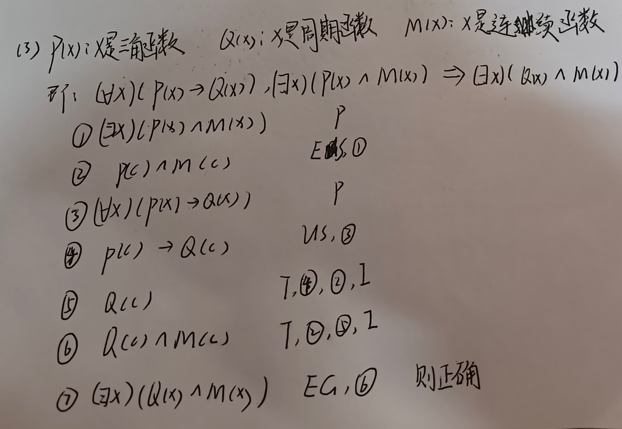 (3) P(x): x是三角函数 Q(x): x是周期函数 M(x): x是连续函数
即: (∀x)(P(x)→Q(x)), (∃x)(P(x)∧M(x)) ⇒ (∃x)(Q(x)∧M(x))
① (∃x)(P(x)∧M(x)) P
② P(c)∧M(c) ES, ①
③ (∀x)(P(x)→Q(x)) P
④ P(c)→Q(c) US, ③
⑤ Q(c) T, ④, ②, I
⑥ Q(c)∧M(c) T, ②, ⑤, I
⑦ (∃x)(Q(x)∧M(x)) EG, ⑥ 则正确